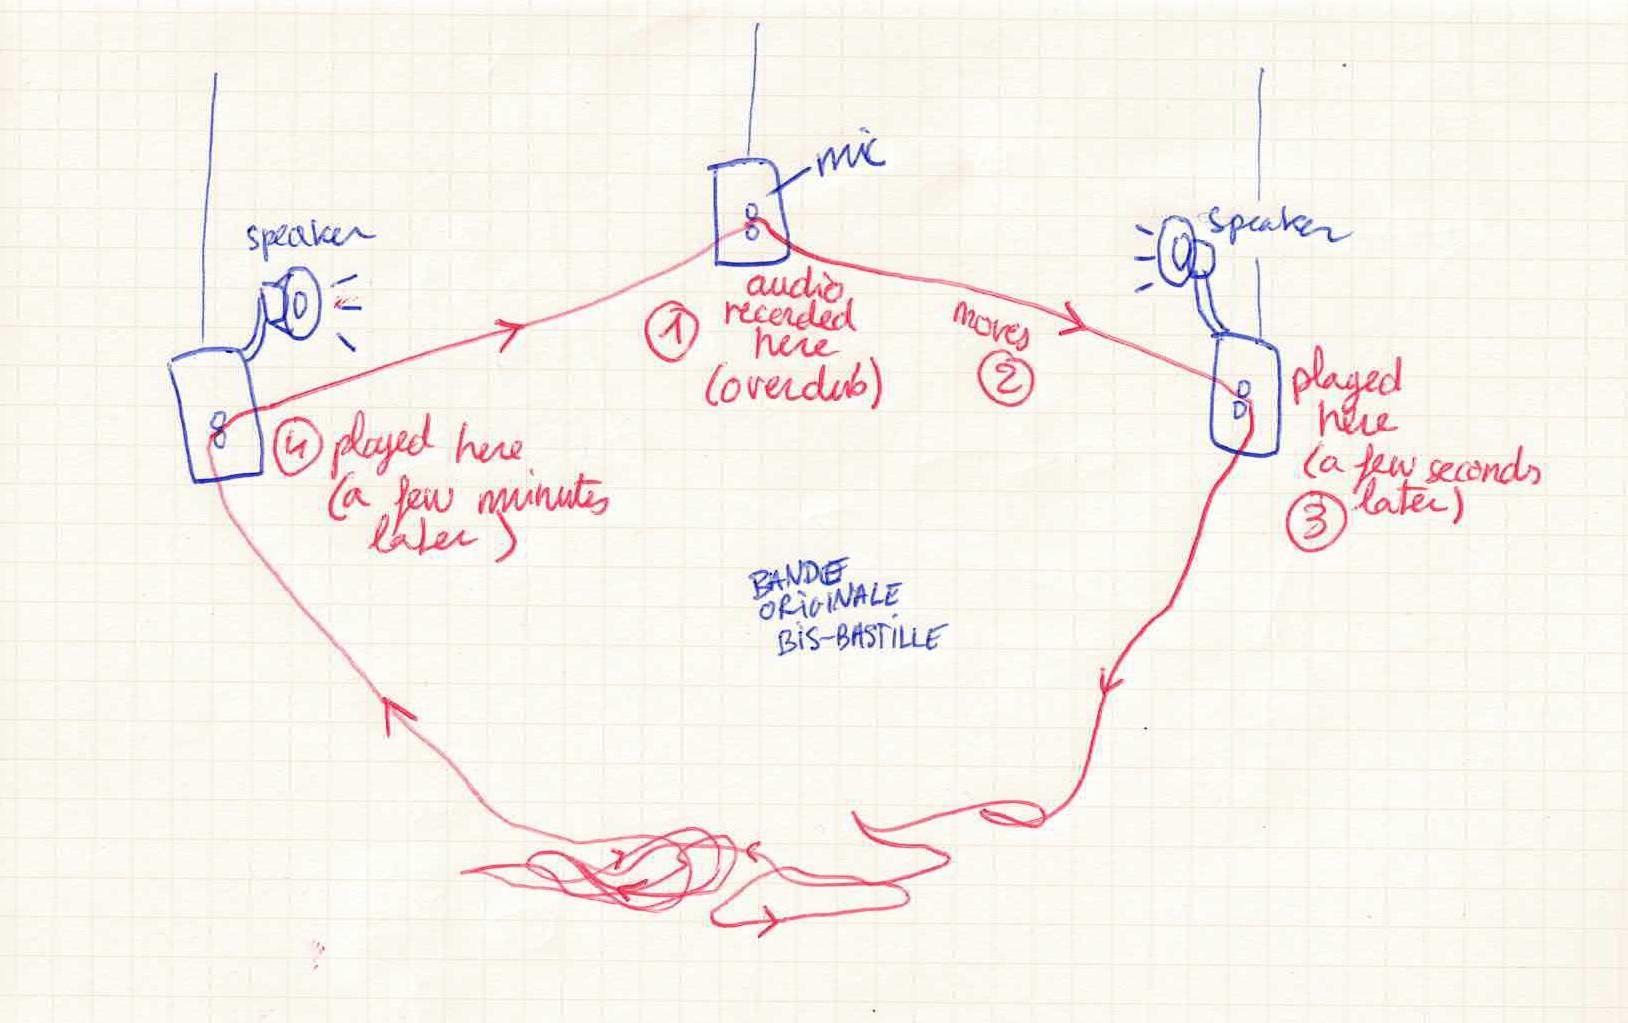 mic
speaker
speaker
1
audio
recorded
here
(overdub)
moves
2
played
here
(a few seconds
later)
3
4 played here
(a few minutes
later)
BANDE
ORIGINALE
BIS-BASTILLE